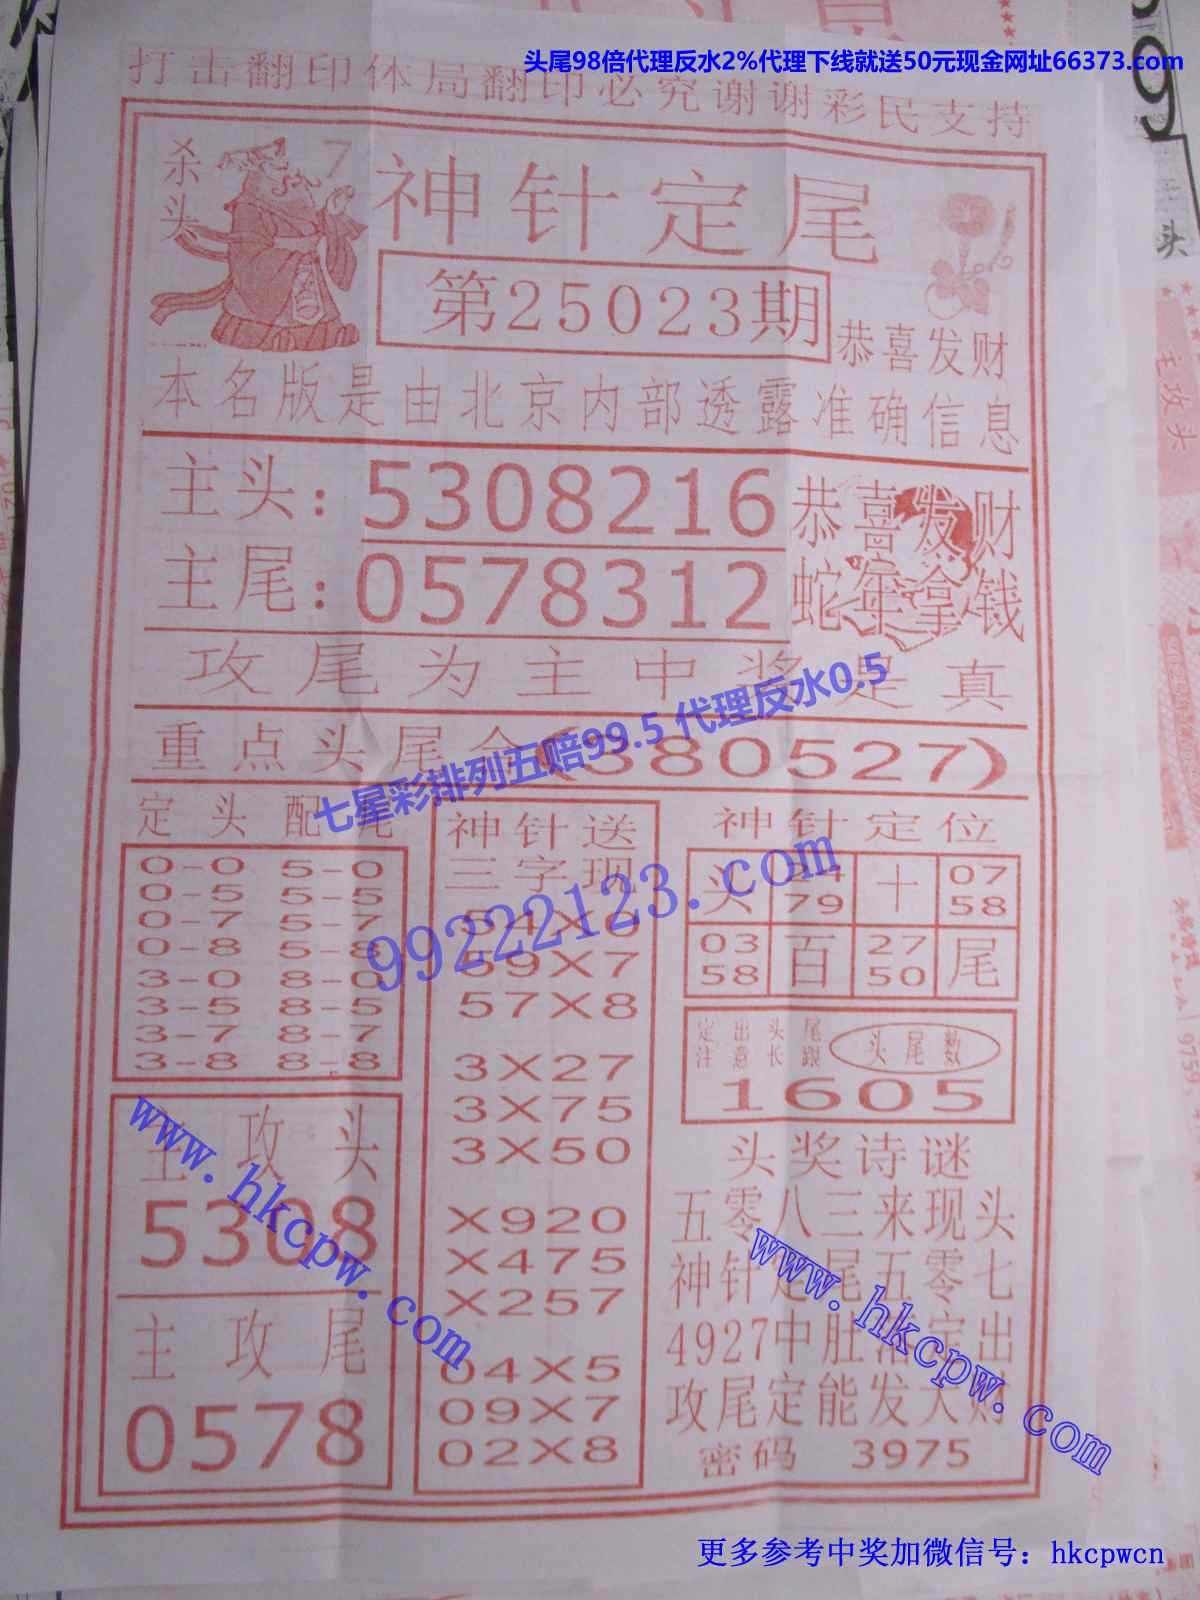 头尾98倍代理反水2%代理下线就送50元现金网址66373.com
打击翻印体局翻印必究谢谢彩民支持
杀头 7
神针定尾
第25023期
恭喜发财
本名版是由北京内部透露准确信息
主头：5308216
主尾：0578312
恭喜发财
蛇年拿钱
攻尾为主中奖是真
重点头尾合(380527)
七星彩排列五赔99.5 代理反水0.5
99222123.com
定头配尾
0-0 5-0
0-5 5-5
0-7 5-7
0-8 5-8
3-0 8-0
3-5 8-5
3-7 8-7
3-8 8-8
主攻头
5308
主攻尾
0578
神针送
三字现
54X0
59X7
57X8
3X27
3X75
3X50
X920
X475
X257
04X5
09X7
02X8
神针定位
头 24 十 07
79 58
03 百 27 尾
58 50
定出头尾
注意长跟
头尾数
1605
头奖诗谜
五零八三来现头
神针定尾五零七
4927中肚落定出
攻尾定能发大财
密码 3975
www.hkcpw.com
www.hkcpw.com
更多参考中奖加微信号：hkcpwcn
毛攻头
头